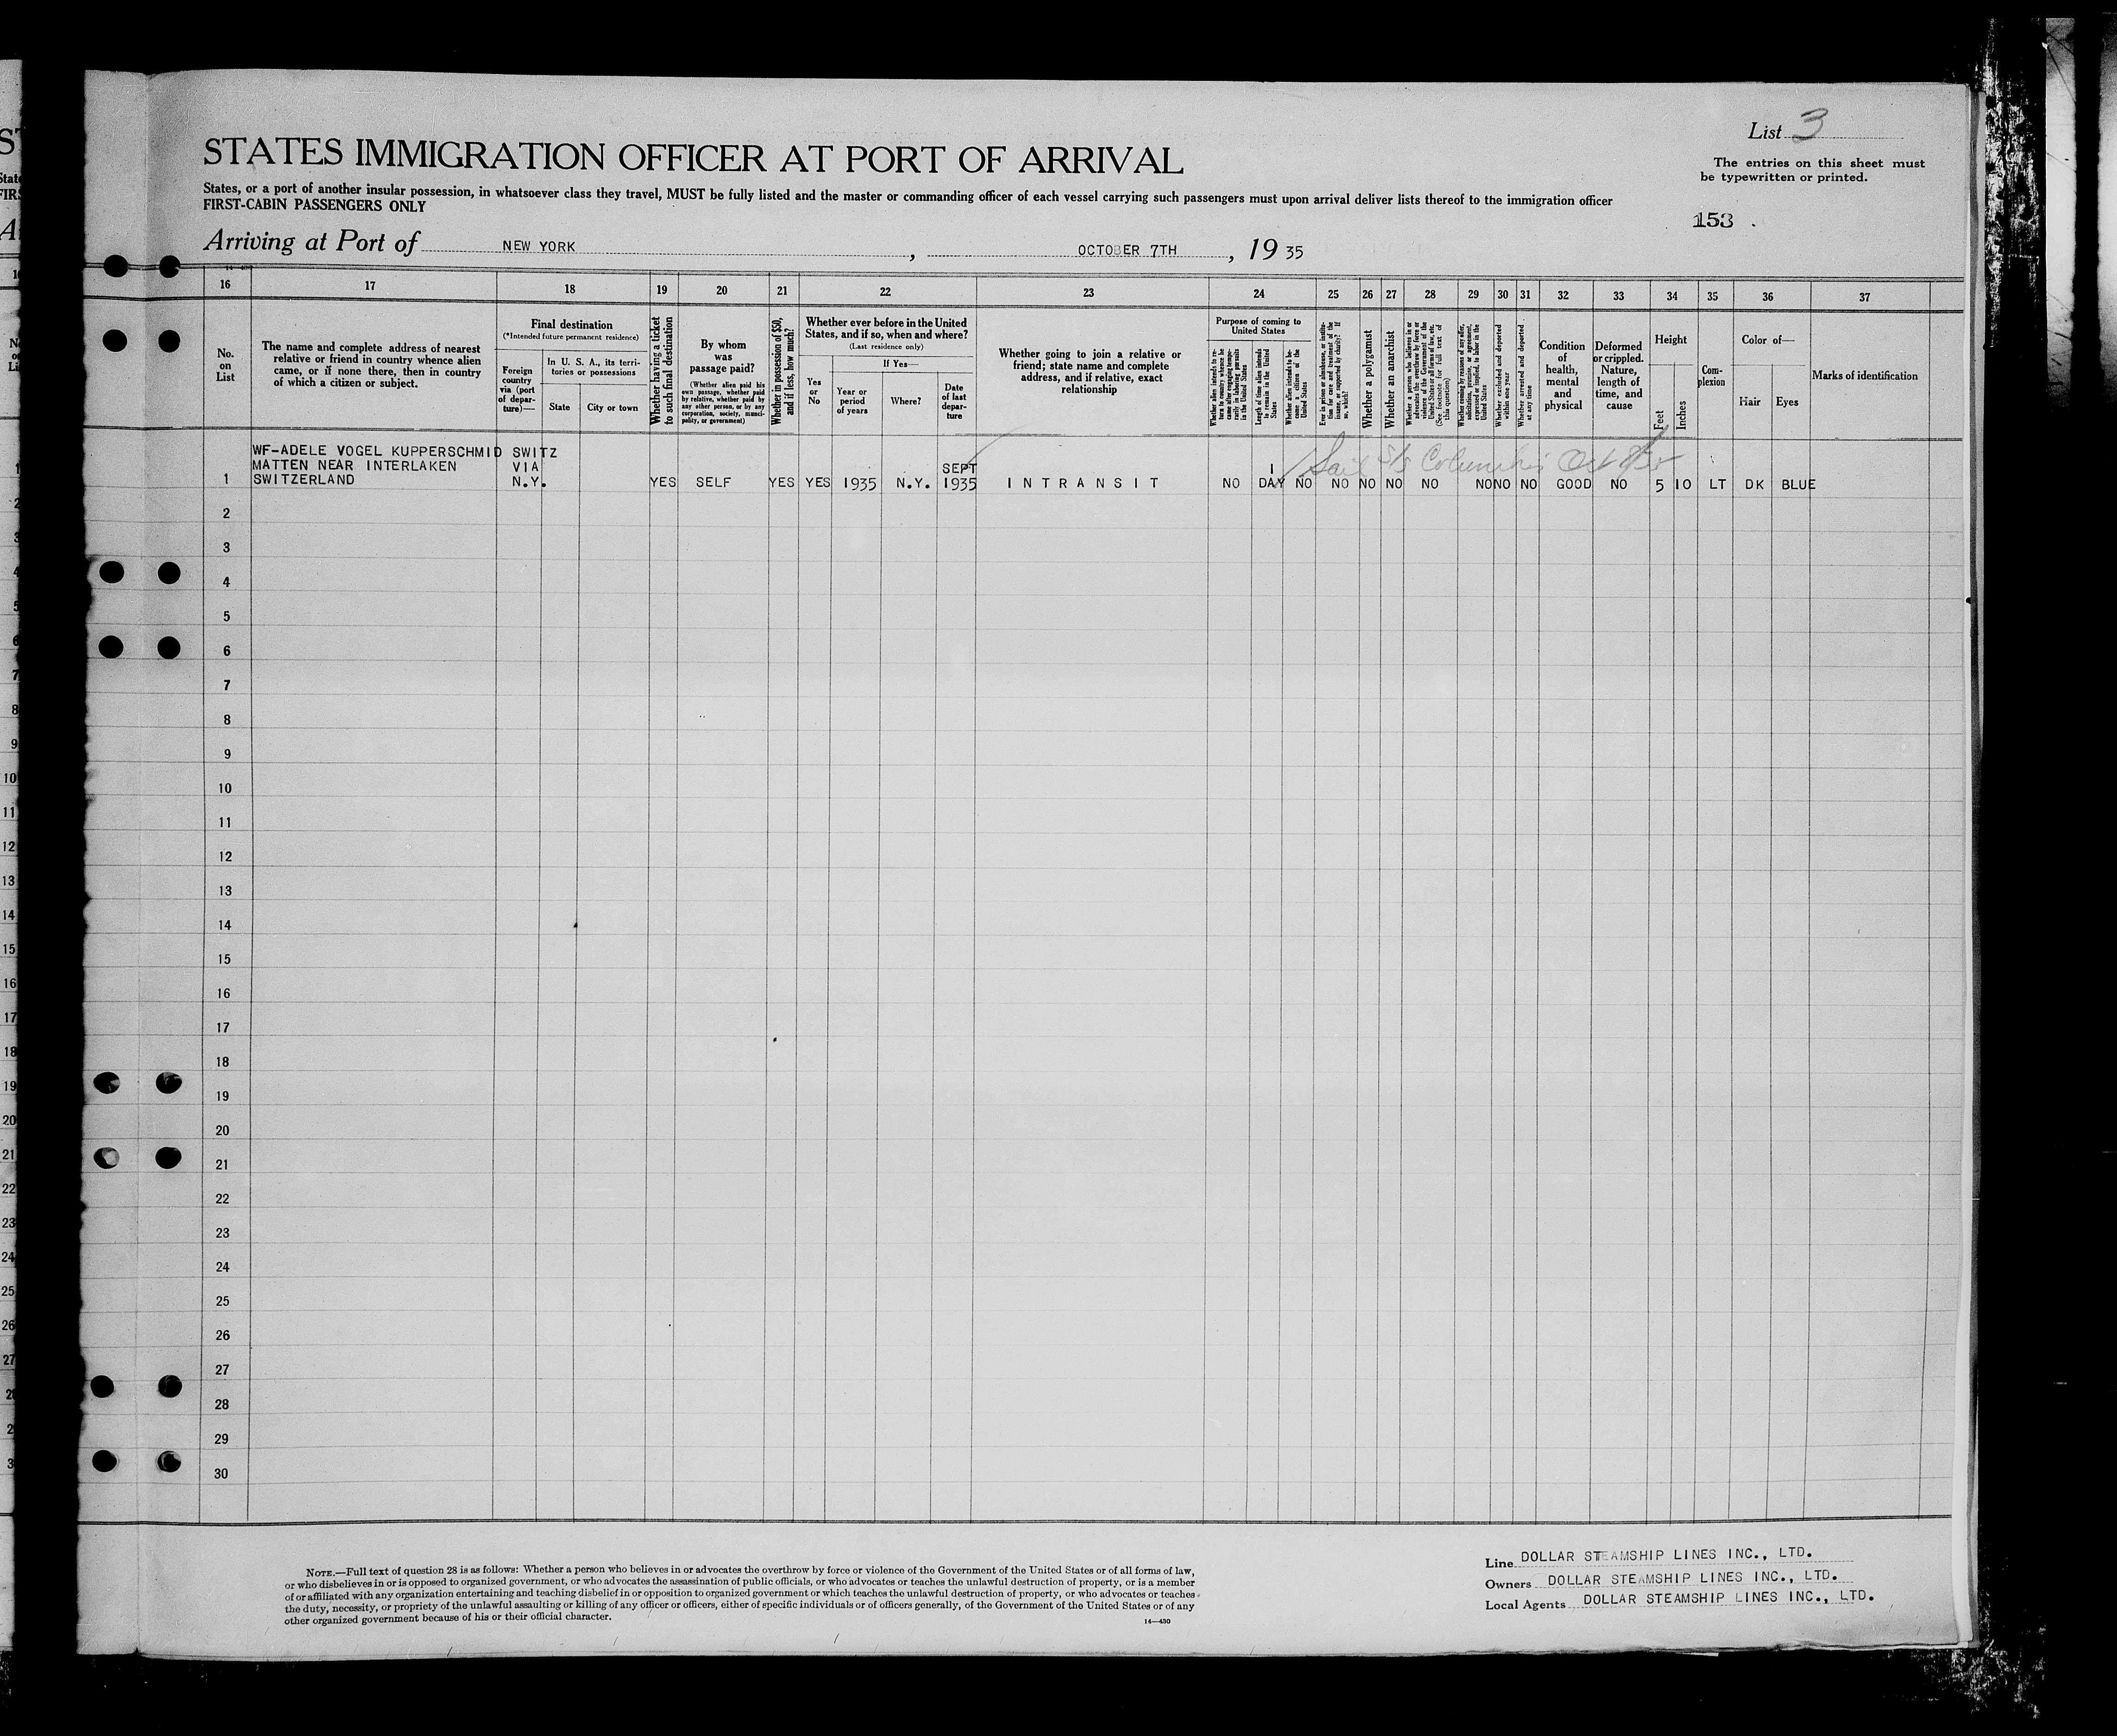 List 3
STATES IMMIGRATION OFFICER AT PORT OF ARRIVAL
The entries on this sheet must
be typewritten or printed.
States, or a port of another insular possession, in whatsoever class they travel, MUST be fully listed and the master or commanding officer of each vessel carrying such passengers must upon arrival deliver lists thereof to the immigration officer
FIRST-CABIN PASSENGERS ONLY
153
Arriving at Port of NEW YORK, OCTOBER 7TH, 1935
16 17 18 19 20 21 22 23 24 25 26 27 28 29 30 31 32 33 34 35 36 37
No.
on
List
The name and complete address of nearest
relative or friend in country whence alien
came, or if none there, then in country
of which a citizen or subject.
Final destination
(*Intended future permanent residence)
Foreign
country
via (port
of depar-
ture)—
In U. S. A., its terri-
tories or possessions
State
City or town
Whether having a ticket
to such final destination
By whom
was
passage paid?
(Whether alien paid his
own passage, whether paid
by relative, whether paid by
any other person, or by any
corporation, society, munici-
pality, or government)
Whether in possession of $50,
and if less, how much?
Whether ever before in the United
States, and if so, when and where?
(Last residence only)
Yes
or
No
If Yes—
Year or
period
of years
Where?
Date
of last
depar-
ture
Whether going to join a relative or
friend; state name and complete
address, and if relative, exact
relationship
Purpose of coming to
United States
Whether alien intends to re-
turn to country whence he
came after engaging tempo-
rarily in laboring pursuits
in the United States
Length of time alien intends
to remain in the United
States
Whether alien intends to be-
come a citizen of the
United States
Ever in prison or almshouse, or institu-
tion for care and treatment of the
insane, or supported by charity? If
so, which?
Whether a polygamist
Whether an anarchist
Whether a person who believes in or
advocates the overthrow by force or
violence of the Government of the
United States or all forms of law, etc.
(See footnote for full text of
this question)
Whether coming by reasons of any offer,
solicitation, promise, or agreement,
expressed or implied, to labor in the
United States
Whether excluded and deported
within one year
Whether arrested and deported
at any time
Condition
of
health,
mental
and
physical
Deformed
or crippled.
Nature,
length of
time, and
cause
Height
Feet
Inches
Com-
plexion
Color of—
Hair
Eyes
Marks of identification
WF-ADELE VOGEL KUPPERSCHMID SWITZ
MATTEN NEAR INTERLAKEN VIA SEPT 1 Sail S/S Columbus Oct
1 SWITZERLAND N.Y. YES SELF YES YES 1935 N.Y. 1935 INTRANSIT NO DAY NO NO NO NO NO NO NO NO GOOD NO 5 10 LT DK BLUE
2
3
4
5
6
7
8
9
10
11
12
13
14
15
16
17
18
19
20
21
22
23
24
25
26
27
28
29
30
NOTE.—Full text of question 28 is as follows: Whether a person who believes in or advocates the overthrow by force or violence of the Government of the United States or of all forms of law,
or who disbelieves in or is opposed to organized government, or who advocates the assassination of public officials, or who advocates or teaches the unlawful destruction of property, or is a member
of or affiliated with any organization entertaining and teaching disbelief in or opposition to organized government or which teaches the unlawful destruction of property, or who advocates or teaches
the duty, necessity, or propriety of the unlawful assaulting or killing of any officer or officers, either of specific individuals or of officers generally, of the Government of the United States or of any
other organized government because of his or their official character.
14—430
Line DOLLAR STEAMSHIP LINES INC., LTD.
Owners DOLLAR STEAMSHIP LINES INC., LTD.
Local Agents DOLLAR STEAMSHIP LINES INC., LTD.